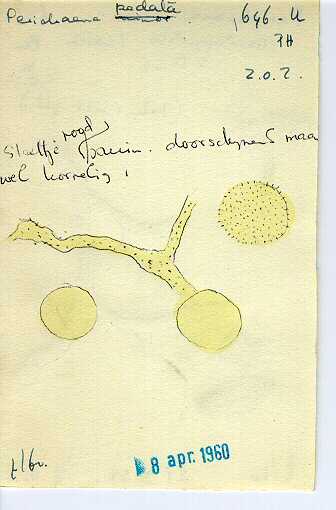 Perichaena pedata
1646-U
7H
2.0.2.
rood
Steeltje bruin. doorschijnend maa
wel korrelig,
8 apr. 1960